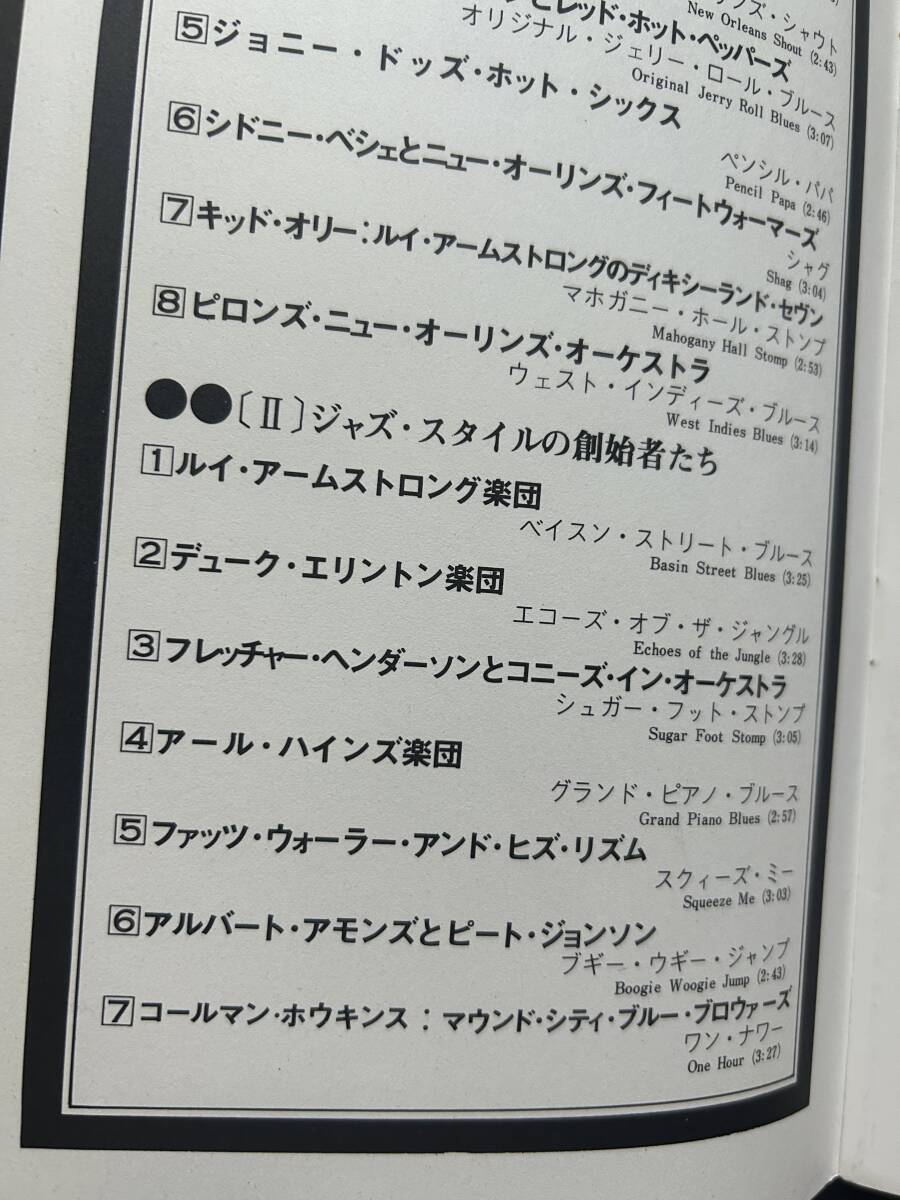 ンズ・シャウト
New Orleans Shout (2:43)
とレッド・ホット・ペッパーズ
オリジナル・ジェリー・ロール・ブルース
Original Jerry Roll Blues (3:07)
5 ジョニー・ドッズ・ホット・シックス
ペンシル・パパ
Pencil Papa (2:46)
6 シドニー・ベシェとニュー・オーリンズ・フィートウォーマーズ
シャグ
Shag (3:04)
7 キッド・オリー：ルイ・アームストロングのディキシーランド・セヴン
マホガニー・ホール・ストンプ
Mahogany Hall Stomp (2:53)
8 ピロンズ・ニュー・オーリンズ・オーケストラ
ウェスト・インディーズ・ブルース
West Indies Blues (3:14)
●●〔Ⅱ〕ジャズ・スタイルの創始者たち
1 ルイ・アームストロング楽団
ベイスン・ストリート・ブルース
Basin Street Blues (3:25)
2 デューク・エリントン楽団
エコーズ・オブ・ザ・ジャングル
Echoes of the Jungle (3:28)
3 フレッチャー・ヘンダーソンとコニーズ・イン・オーケストラ
シュガー・フット・ストンプ
Sugar Foot Stomp (3:05)
4 アール・ハインズ楽団
グランド・ピアノ・ブルース
Grand Piano Blues (2:57)
5 ファッツ・ウォーラー・アンド・ヒズ・リズム
スクィーズ・ミー
Squeeze Me (3:03)
6 アルバート・アモンズとピート・ジョンソン
ブギー・ウギー・ジャンプ
Boogie Woogie Jump (2:43)
7 コールマン・ホウキンス：マウンド・シティ・ブルー・ブロウァーズ
ワン・ナワー
One Hour (3:27)